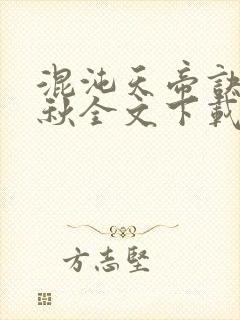 混沌天帝訣
秋全文下載
方志堅